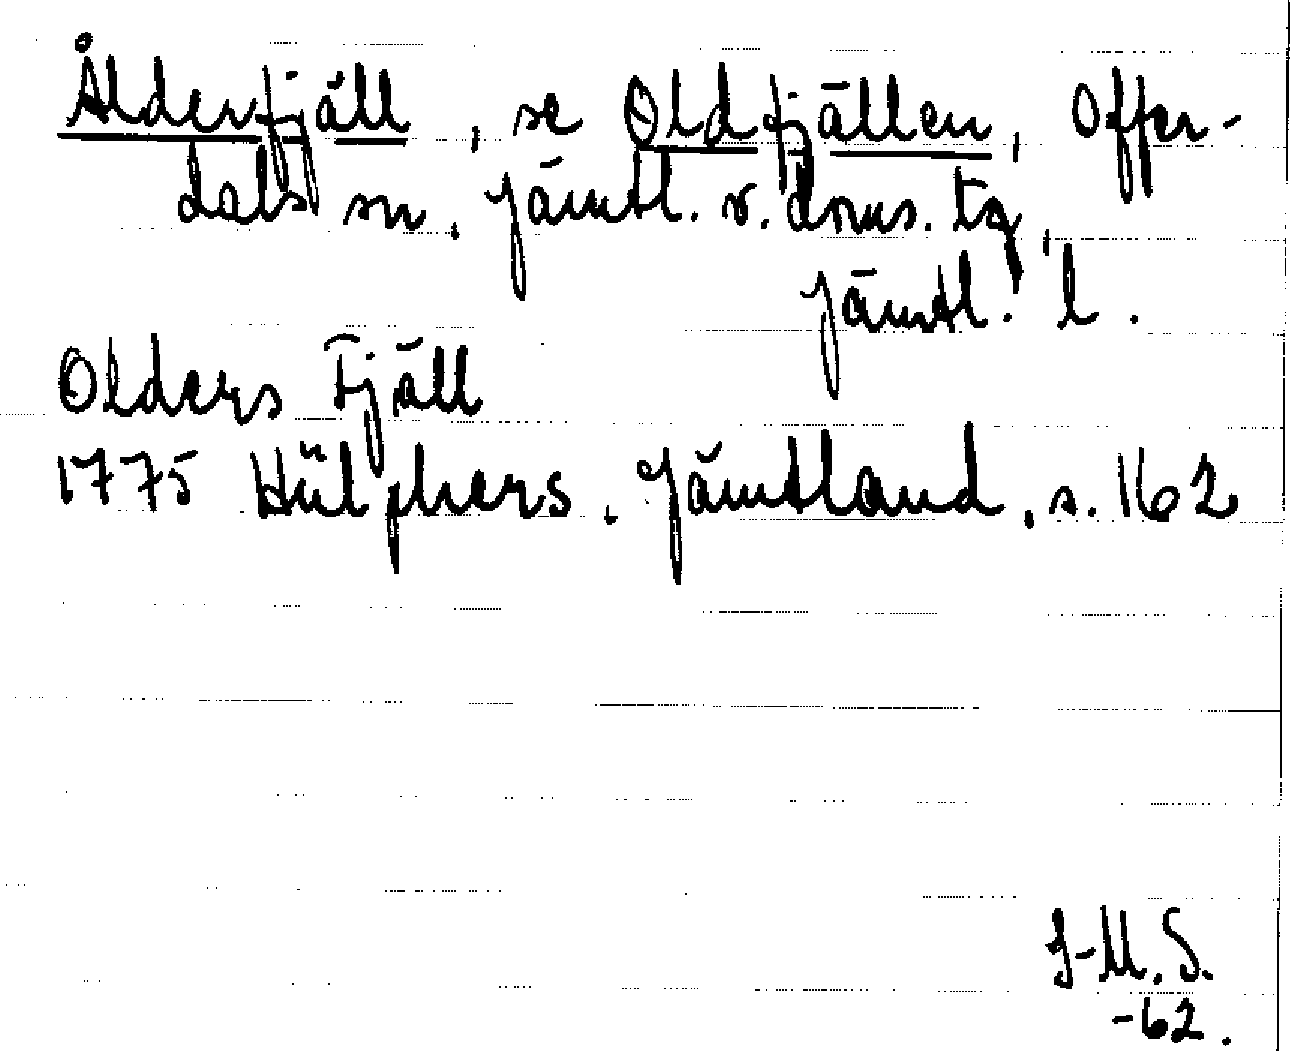 Ålderfjäll, se Oldfjällen, Offer-
dals sn, Jämtl. v. doms. tg,
Jämtl. l.
Olders Fjäll
1775 Hülphers. Jämtland, s. 162
J-M.S.
-62.